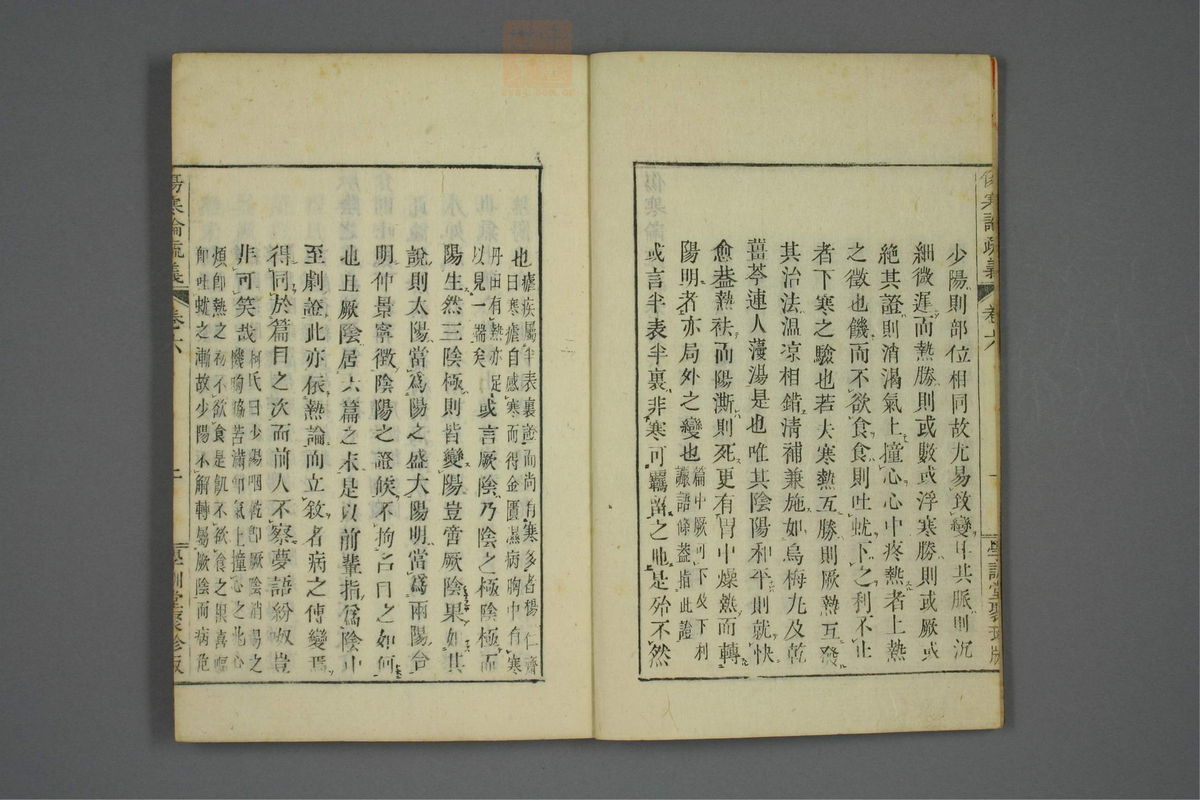 少陽則部位相同故尤易致變耳其脈則沉
細微遲而熱勝則或數或浮寒勝則或厥或
絕其證則消渴氣上撞心心中疼熱者上熱
之徵也饑而不欲食食則吐蚘下之利不止
者下寒之驗也若夫寒熱互勝則厥熱互發
其治法溫凉相錯清補兼施如烏梅丸及乾
薑芩連人薓湯是也唯其陰陽和平則就快
愈葢熱袪而陽澌則死更有胃中燥熱而轉
陽明者亦局外之變也篇中厥可下及下利
譫語條葢指此證
或言半表半裏非寒可羈畱之地是殆不然
傷寒論疏義 卷六 學訓堂聚珍版
也瘧疾屬半表裏證而尚有寒多者楊仁齋
曰寒瘧自感寒而得金匱濕病胸中有寒
丹田有熱亦足
以見一端矣或言厥陰乃陰之極陰極而
陽生然三陰極則皆變陽豈啻厥陰果如其
說則太陽當爲陽之盛太陽明當爲兩陽合
明仲景寧徵陰陽之證候不拘名目之如何
也且厥陰居六篇之末是以前輩指爲陰中
至劇證此亦依熱論而立敘者病之傳變焉
得同於篇目之次而前人不察夢語紛奴豈
非可笑哉柯氏曰少陽咽乾卽厥陰消渴之
機胸脇苦滿卽氣上撞心之兆心
煩卽熱之初不欲食是飢不欲食之根喜嘔
卽吐蚘之漸故少陽不解轉屬厥陰而病危
傷寒論疏義 卷六 十一 學訓堂聚珍版